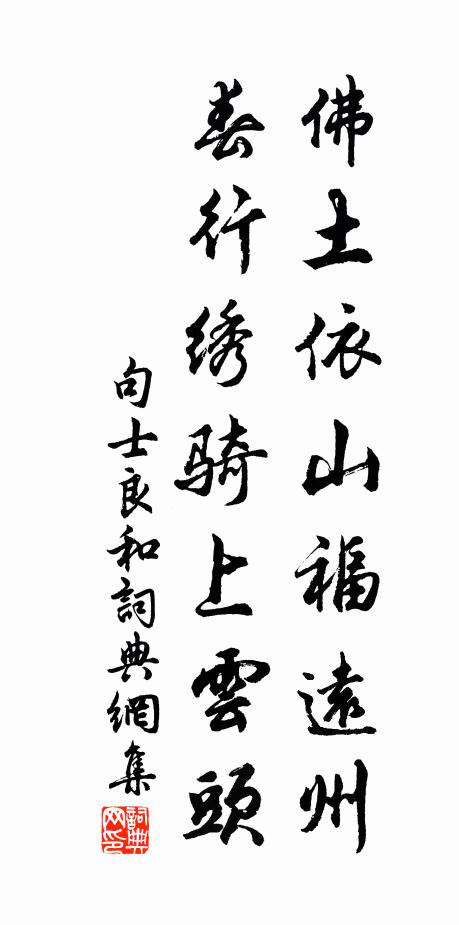 佛土依山福遠州
春行绣骑上雲頭
句士良和詞典網集
詞典网印